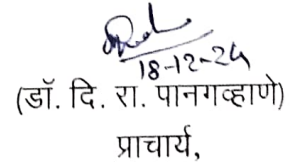 18-12-24
(डॉ. दि. रा. पानगव्हाणे)
प्राचार्य,